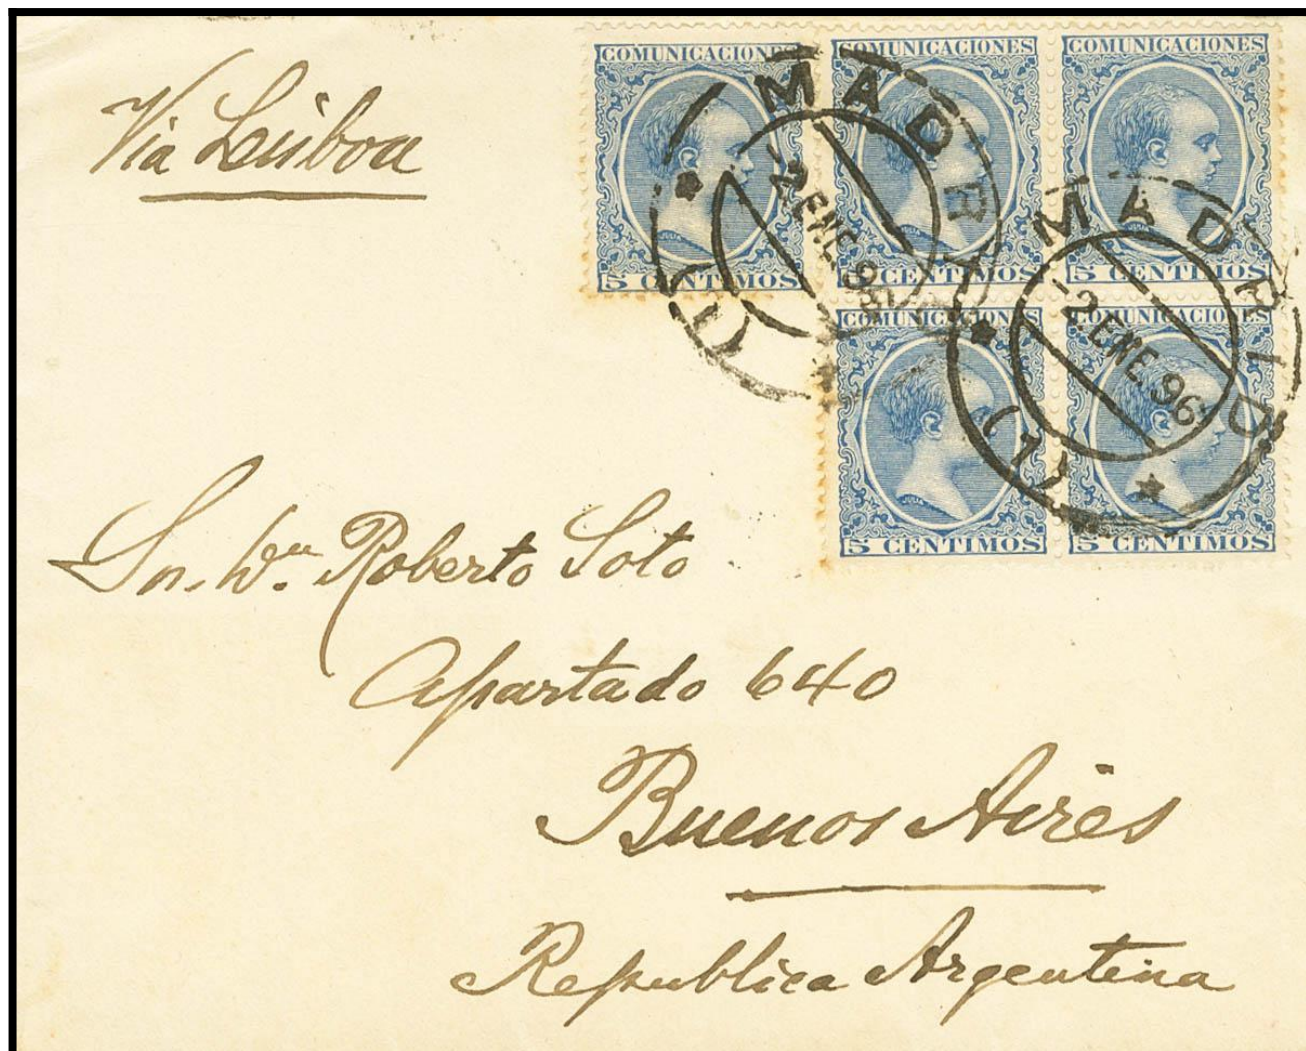 Via Lisboa
COMUNICACIONES
COMUNICACIONES
COMUNICACIONES
5 CENTIMOS
5 CENTIMOS
5 CENTIMOS
COMUNICACIONES
COMUNICACIONES
5 CENTIMOS
5 CENTIMOS
MADRID
2 ENE. 96
(1)
MADRID
2 ENE. 96
(1)
Sr. Dn. Roberto Soto
Apartado 640
Buenos Aires
Republica Argentina